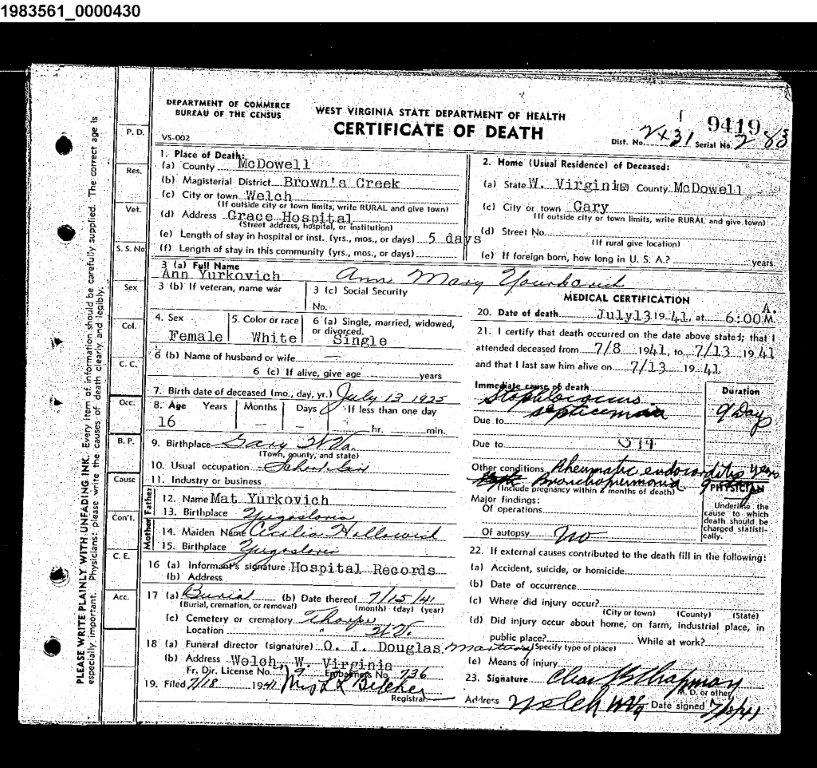 1983561_0000430
DEPARTMENT OF COMMERCE
BUREAU OF THE CENSUS
WEST VIRGINIA STATE DEPARTMENT OF HEALTH
CERTIFICATE OF DEATH
VS-002
Dist. No. 2431 Serial No. 283
9419
P. D.
Res.
Vet.
S. S. No
Sex
Col.
C. C.
Occ.
B. P.
Cause
Con't.
C. E.
Acc.
PLEASE WRITE PLAINLY WITH UNFADING INK. Every item of information should be carefully supplied. The correct age is
especially important. Physicians: please write the causes of death clearly and legibly.
1. Place of Death:
(a) County McDowell
(b) Magisterial District Brown's Creek
(c) City or town Welch
(If outside city or town limits, write RURAL and give town)
(d) Address Grace Hospital
(Street address, hospital, or institution)
(e) Length of stay in hospital or inst. (yrs., mos., or days) 5 days
(f) Length of stay in this community (yrs., mos., or days)
2. Home (Usual Residence) of Deceased:
(a) State W. Virginia County McDowell
(c) City or town Gary
(If outside city or town limits, write RURAL and give town)
(d) Street No.
(If rural give location)
(e) If foreign born, how long in U. S. A.? years
3 (a) Full Name
Ann Yurkovich Anne Mary
3 (b) If veteran, name war
3 (c) Social Security
No.
4. Sex
Female
5. Color or race
White
6 (a) Single, married, widowed,
or divorced.
Single
6 (b) Name of husband or wife —
6 (c) If alive, give age years
7. Birth date of deceased (mo., day, yr.) July 13 1925
8. Age Years Months Days If less than one day
16 — — hr. min.
9. Birthplace Gary W Va.
(Town, county, and state)
10. Usual occupation
11. Industry or business
Father
12. Name Mat Yurkovich
13. Birthplace Yugoslovia
Mother
14. Maiden Name Cecilia
15. Birthplace Yugoslovia
16 (a) Informant's signature Hospital Records
(b) Address
17 (a) Burial (b) Date thereof 7/15/41
(Burial, cremation, or removal) (month) (day) (year)
(c) Cemetery or crematory Thorpe
Location W.V.
18 (a) Funeral director (signature) O. J. Douglas
(b) Address Welch, W. Virginia
Fr. Dir. License No. 9 Embalmers No. 736
19. Filed 7/18 1941 Mrs L L Belcher
Registrar
MEDICAL CERTIFICATION
20. Date of death July 13 1941, at 6:00 A. M.
21. I certify that death occurred on the date above stated; that I
attended deceased from 7/8 1941, to 7/13 1941
and that I last saw him alive on 7/13 1941
Immediate cause of death
Staphlococcus
septicemia
Duration
9 Day
Due to
Due to
Other conditions Rheumatic endocarditis years
Bronchopneumonia
(Include pregnancy within 3 months of death)
PHYSICIAN
Underline the
cause to which
death should be
charged statisti-
cally.
Major findings:
Of operations
Of autopsy No
22. If external causes contributed to the death fill in the following:
(a) Accident, suicide, or homicide
(b) Date of occurrence
(c) Where did injury occur?
(City or town) (County) (State)
(d) Did injury occur about home, on farm, industrial place, in
public place? While at work?
(Specify type of place)
(e) Means of injury
23. Signature Chas B Chapman
M. D. or other
Address Welch WVa Date signed